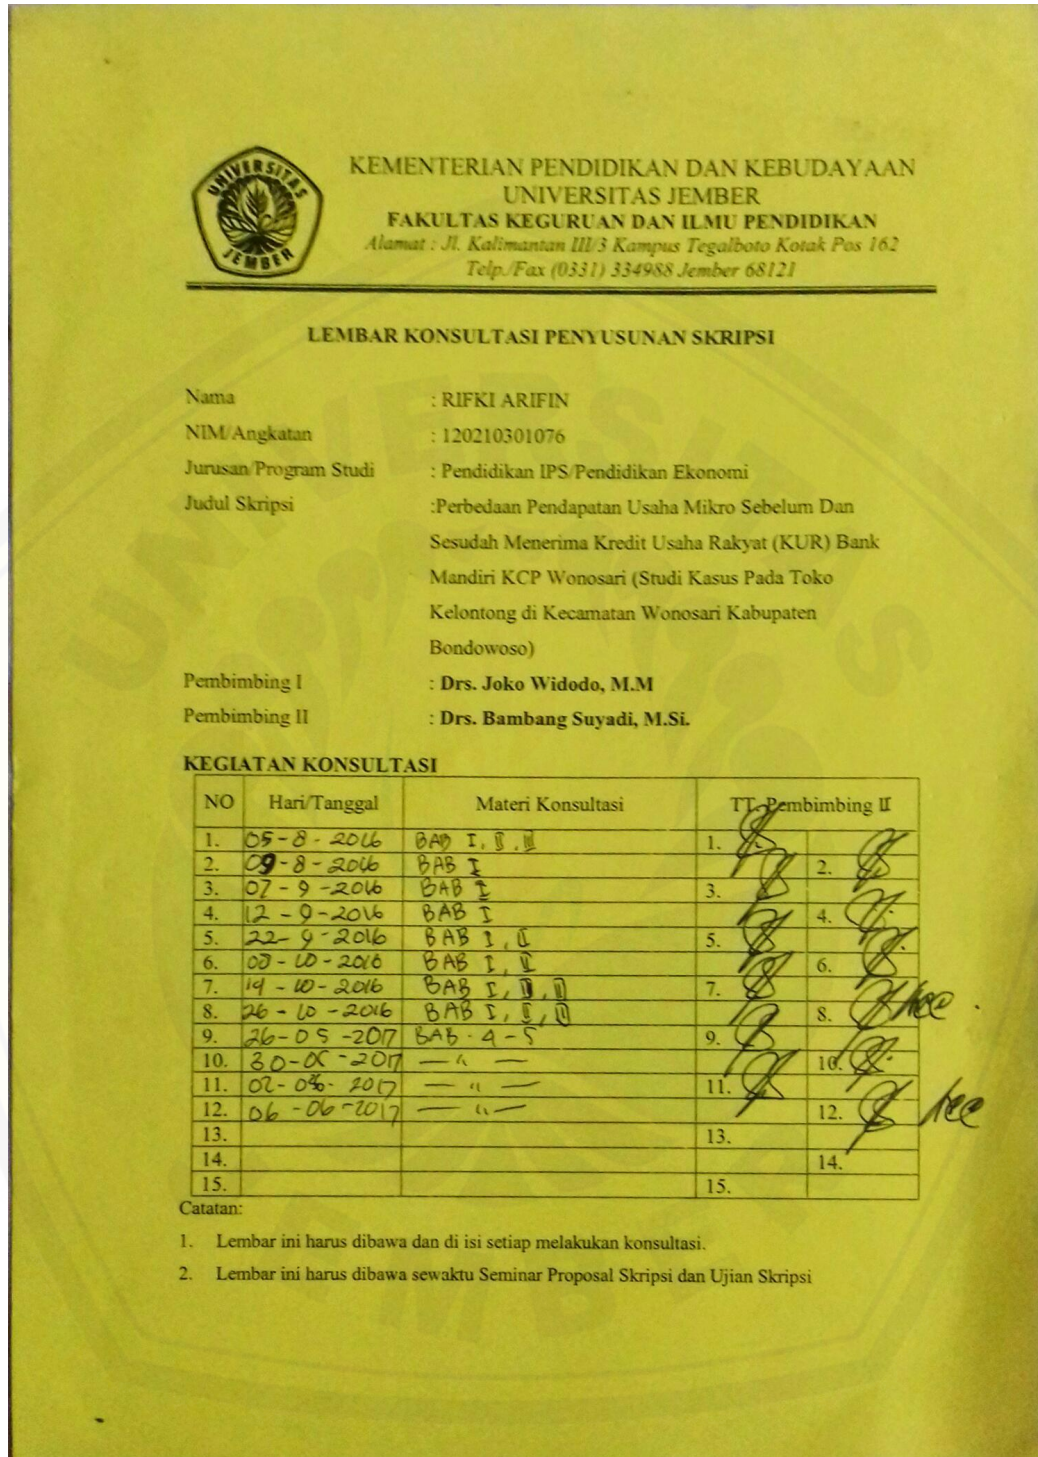 UNIVERSITAS
JEMBER
KEMENTERIAN PENDIDIKAN DAN KEBUDAYAAN
UNIVERSITAS JEMBER
FAKULTAS KEGURUAN DAN ILMU PENDIDIKAN
Alamat : Jl. Kalimantan III/3 Kampus Tegalboto Kotak Pos 162
Telp./Fax (0331) 334988 Jember 68121
LEMBAR KONSULTASI PENYUSUNAN SKRIPSI
Nama : RIFKI ARIFIN
NIM/Angkatan : 120210301076
Jurusan/Program Studi : Pendidikan IPS/Pendidikan Ekonomi
Judul Skripsi :Perbedaan Pendapatan Usaha Mikro Sebelum Dan
Sesudah Menerima Kredit Usaha Rakyat (KUR) Bank
Mandiri KCP Wonosari (Studi Kasus Pada Toko
Kelontong di Kecamatan Wonosari Kabupaten
Bondowoso)
Pembimbing I : Drs. Joko Widodo, M.M
Pembimbing II : Drs. Bambang Suyadi, M.Si.
KEGIATAN KONSULTASI
NO Hari/Tanggal Materi Konsultasi TT. Pembimbing II
1. 05-8-2016 BAB I, II, III 1.
2. 09-8-2016 BAB I 2.
3. 07-9-2016 BAB I 3.
4. 12-9-2016 BAB I 4.
5. 22-9-2016 BAB I, II 5.
6. -10-2016 BAB I, II 6.
7. 19-10-2016 BAB I, II, III 7.
8. 26-10-2016 BAB I, II, III 8. Acc.
9. 26-05-2017 BAB. 4-5 9.
10. 30-05-2017 — " — 10.
11. 02-06-2017 — " — 11.
12. 06-06-2017 — " — 12. Acc
13. 13.
14. 14.
15. 15.
Catatan:
1. Lembar ini harus dibawa dan di isi setiap melakukan konsultasi.
2. Lembar ini harus dibawa sewaktu Seminar Proposal Skripsi dan Ujian Skripsi